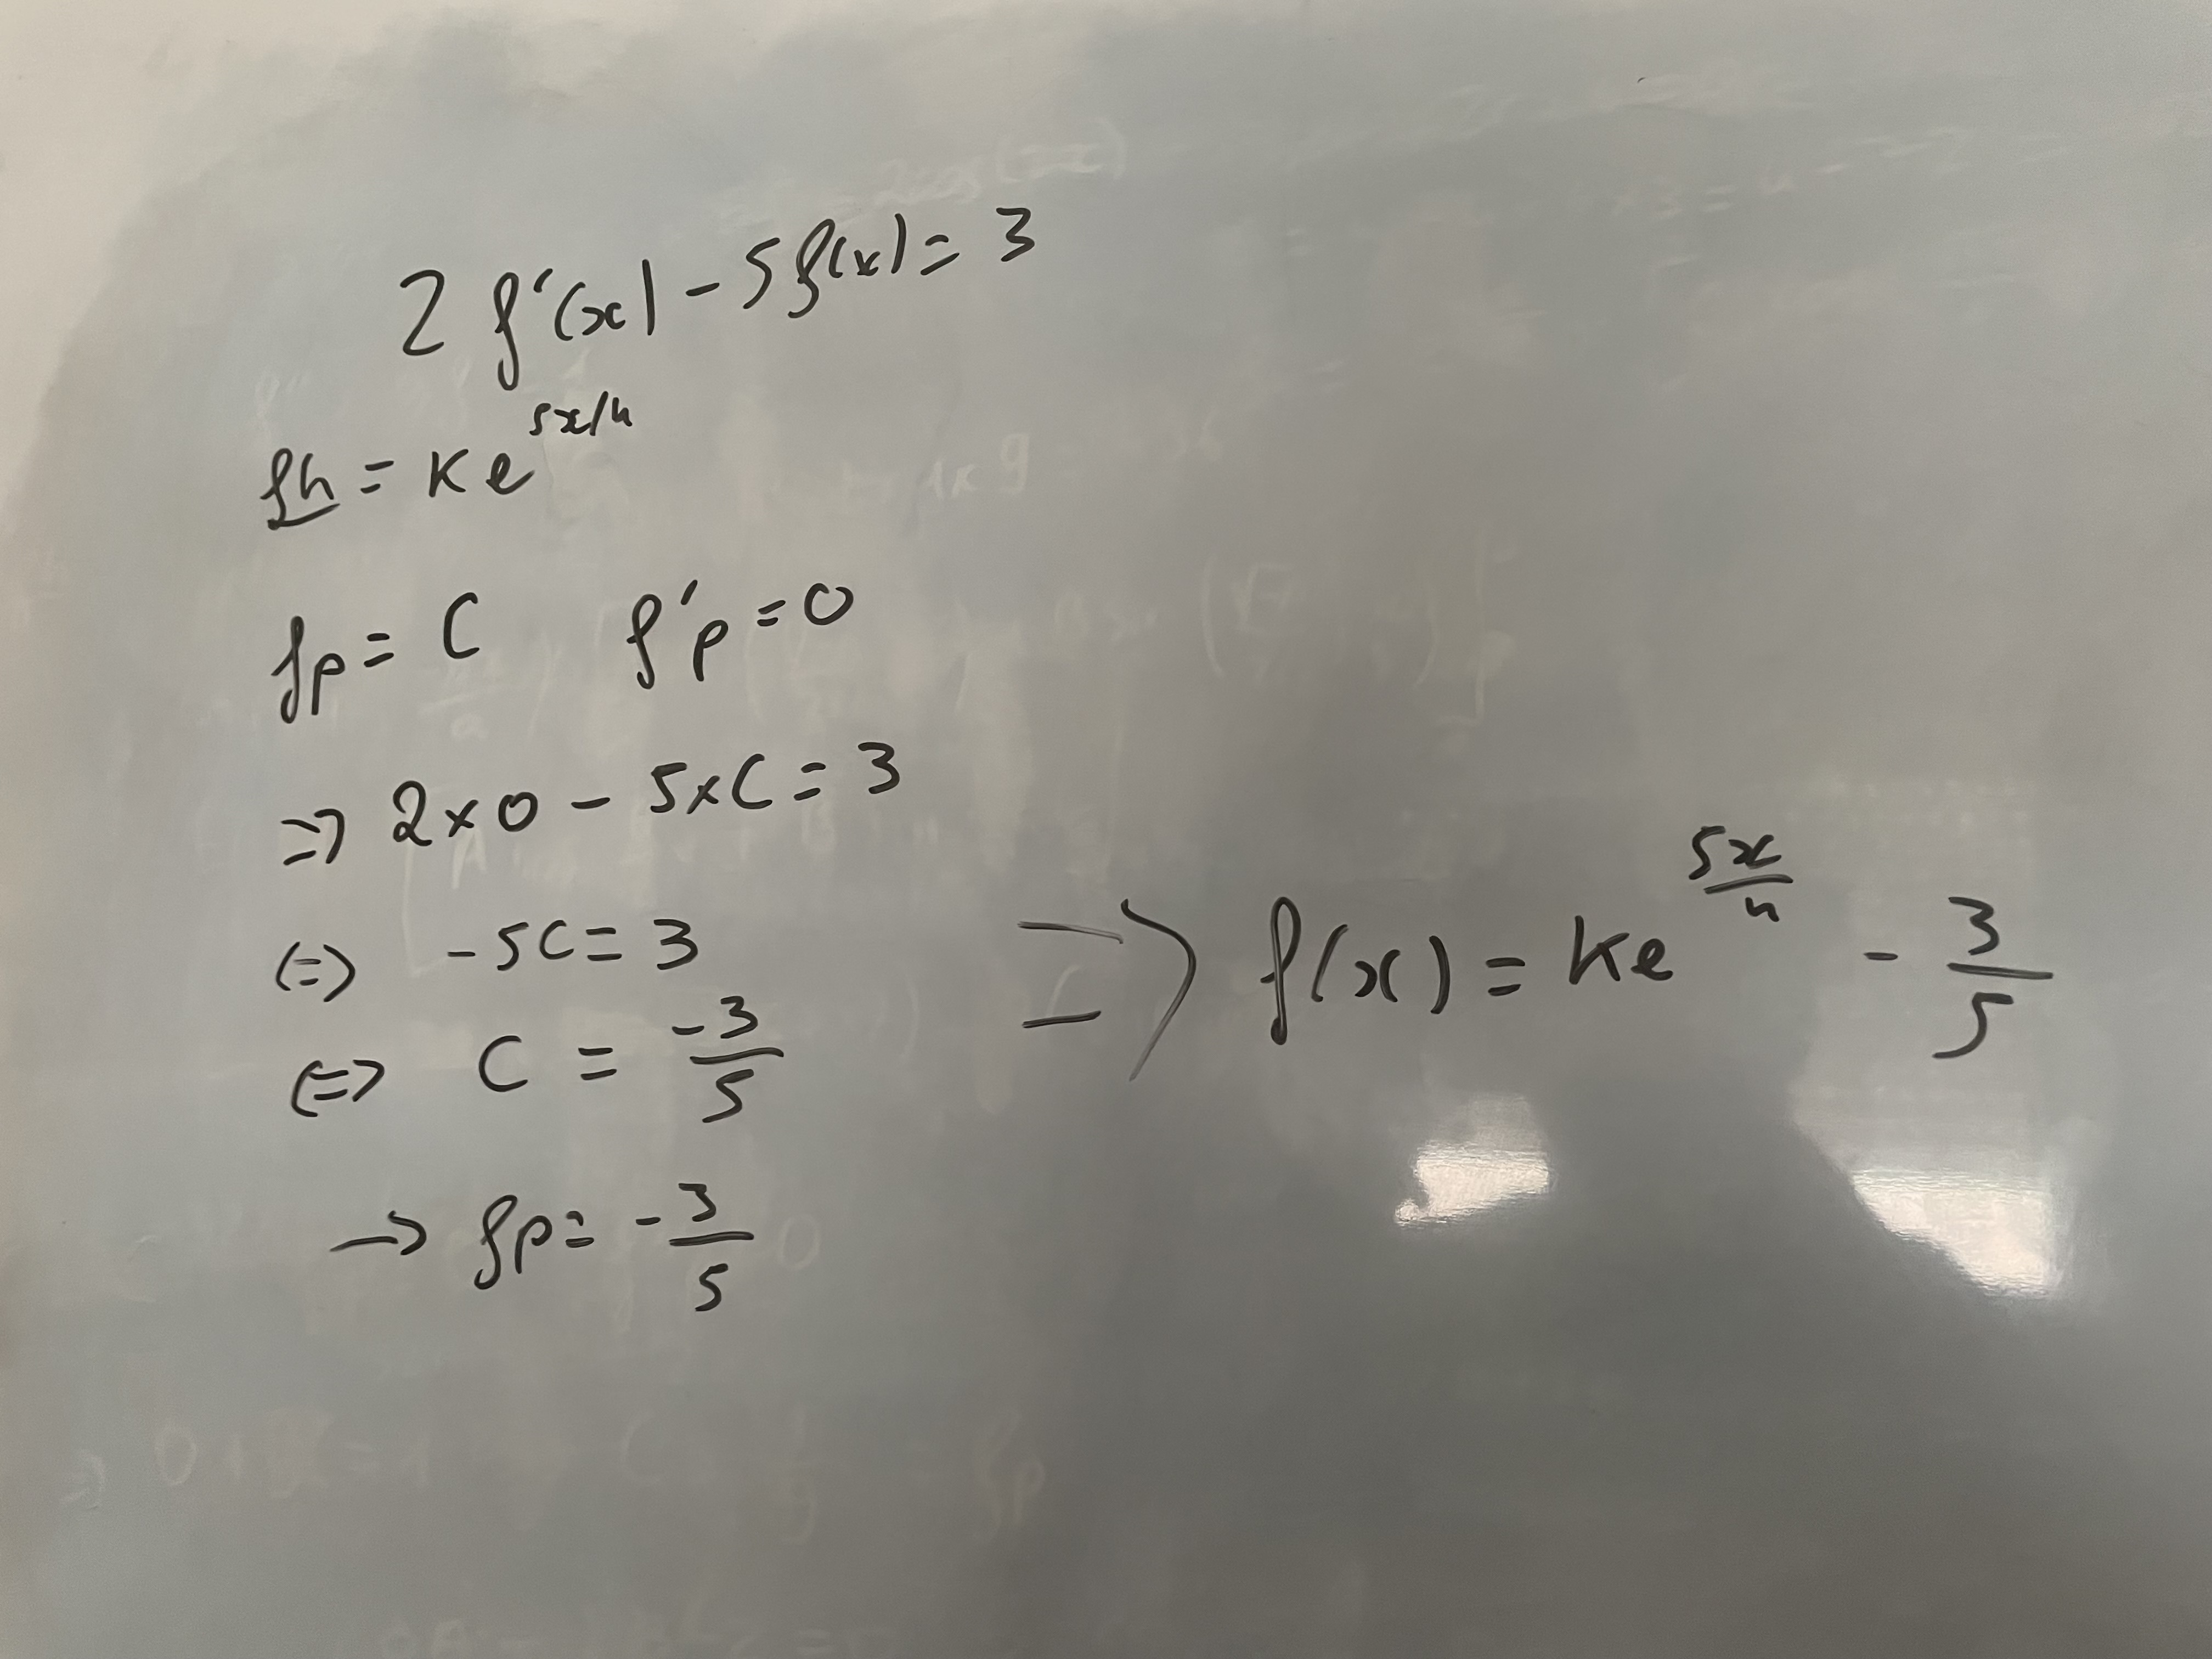 2 f'(x) - 5f(x) = 3
fh = Ke^(5x/n)
fp = C f'p = 0
=> 2 × 0 - 5 × C = 3
<=> -5C = 3
<=> C = -3/5
-> fp = -3/5
=> f(x) = Ke^(5x/n) - 3/5